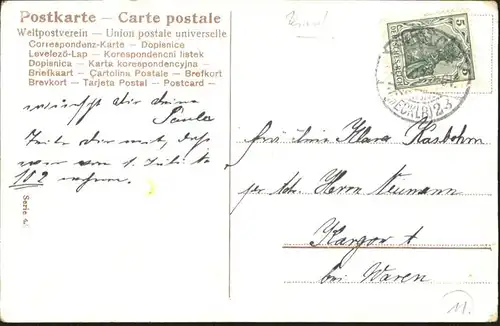 Postkarte – Carte postale
Weltpostverein – Union postale universelle
Correspondenz-Karte – Dopisnice
Levelező-Lap – Korespondencni listek
Dopisnica – Karta korespondencyjna –
Briefkaart – Cartolina Postale – Brefkort
Brevkort – Tarjeta Postal – Postcard –
wünscht dir deine
Paula
Teile dir mit, daß
wir vom 1. Juli
102 wohnen.
Serie
5 5
DEUTSCHES REICH
(MECKLB) 2-3
Fräulein Klara Käsbohm
per Adr. Herrn Neumann
Kargow
bei Waren
11.